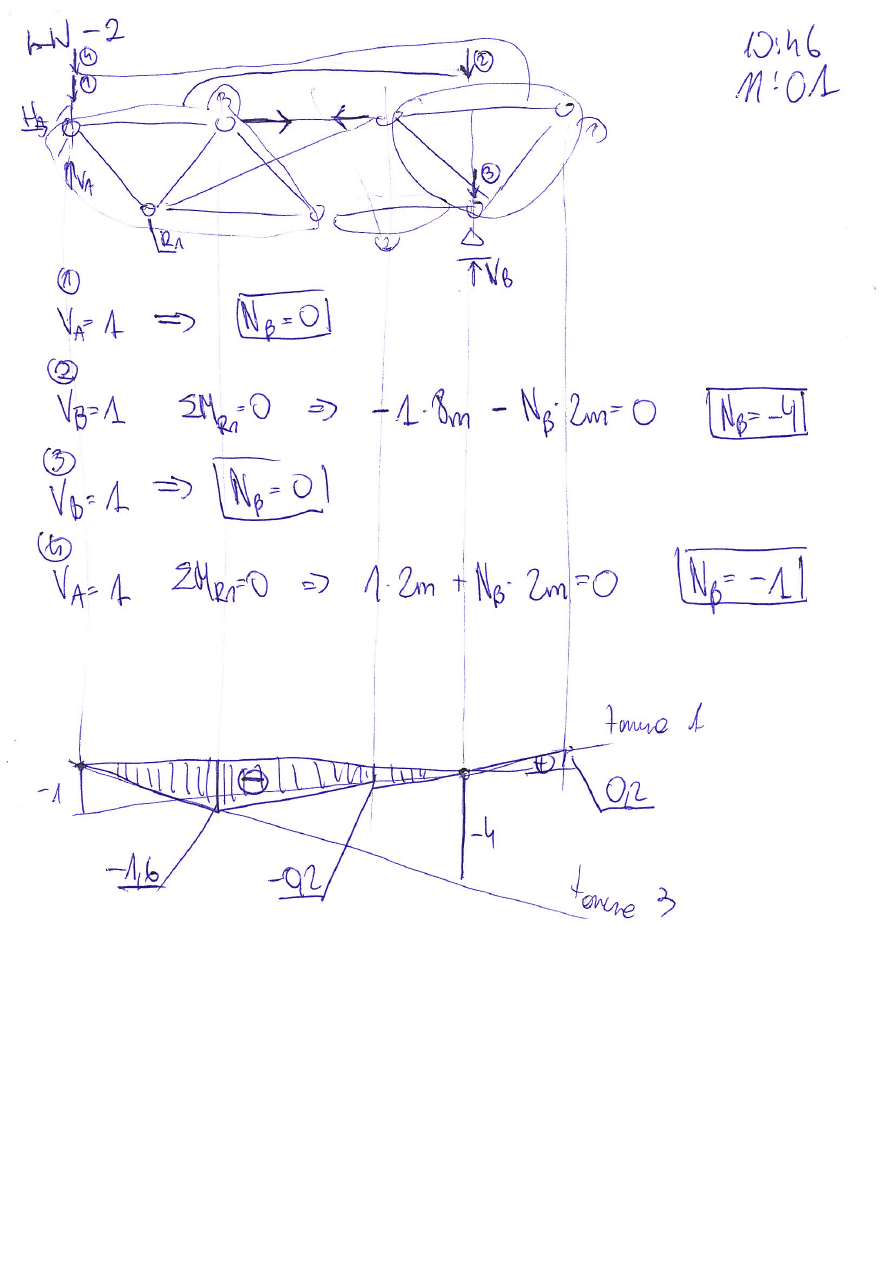 LW-2
10:46
11:01
④
②
①
H_A
③
V_A
R1
V_B
①
V_A = 1 ⇒ N_β = 0
②
V_B = 1 ΣM_R1 = 0 ⇒ -1·8m - N_β·2m = 0 N_β = -4
③
V_B = 1 ⇒ N_β = 0
④
V_A = 1 ΣM_R1 = 0 ⇒ 1·2m + N_β·2m = 0 N_β = -1
1
⊖
⊕
-1
0,2
-4
-1,6
-0,2
3